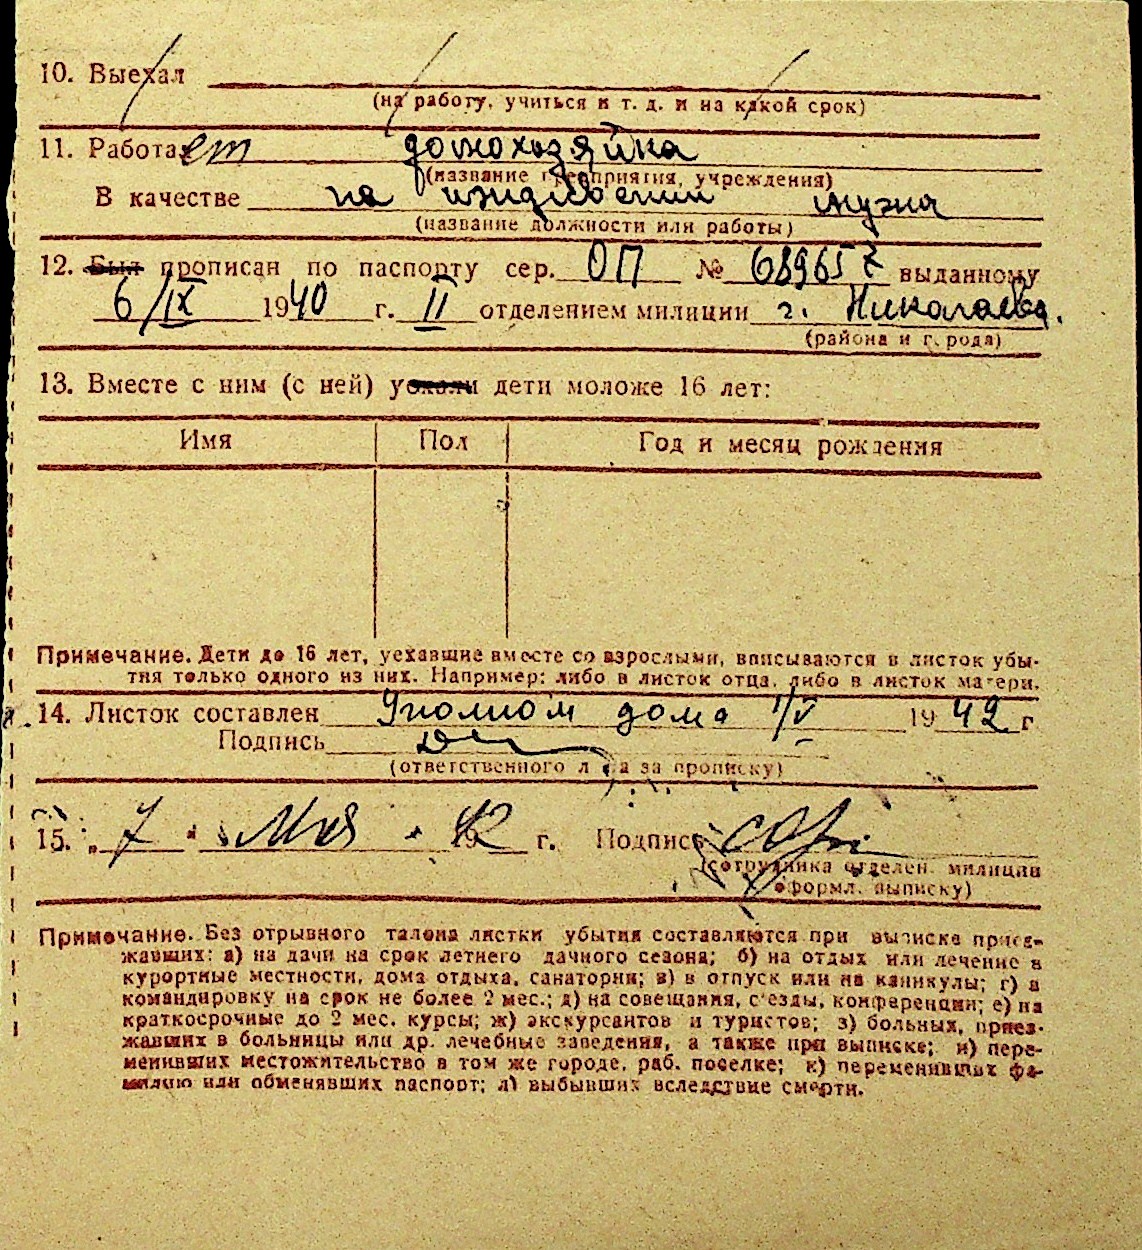 10. Выехал
(на работу, учиться и т. д. и на какой срок)
11. Работает домохозяйка
(название предприятия, учреждения)
В качестве на иждивении мужа
(название должности или работы)
12. Был прописан по паспорту сер. ОП № 689657 выданному
6/IX 1940 г. II отделением милиции г. Николаева.
(района и города)
13. Вместе с ним (с ней) уехали дети моложе 16 лет:
Имя Пол Год и месяц рождения
Примечание. Дети до 16 лет, уехавшие вместе со взрослыми, вписываются в листок убы-
тия только одного из них. Например: либо в листок отца, либо в листок матери.
14. Листок составлен Уполном дома 1/V 1942 г
Подпись
(ответственного лица за прописку)
15. „7" Мая 1942 г. Подпись
(сотрудника отделен. милиции
оформл. выписку)
Примечание. Без отрывного талона листки убытия составляются при выписке приез-
жавших: а) на дачи на срок летнего дачного сезона; б) на отдых или лечение в
курортные местности, дома отдыха, санатории; в) в отпуск или на каникулы; г) в
командировку на срок не более 2 мес.; д) на совещания, с'езды, конференции; е) на
краткосрочные до 2 мес. курсы; ж) экскурсантов и туристов; з) больных, приез-
жавших в больницы или др. лечебные заведения, а также при выписке; и) пере-
менивших местожительство в том же городе, раб. поселке; к) переменивших фа-
милию или обменявших паспорт; л) выбывших вследствие смерти.